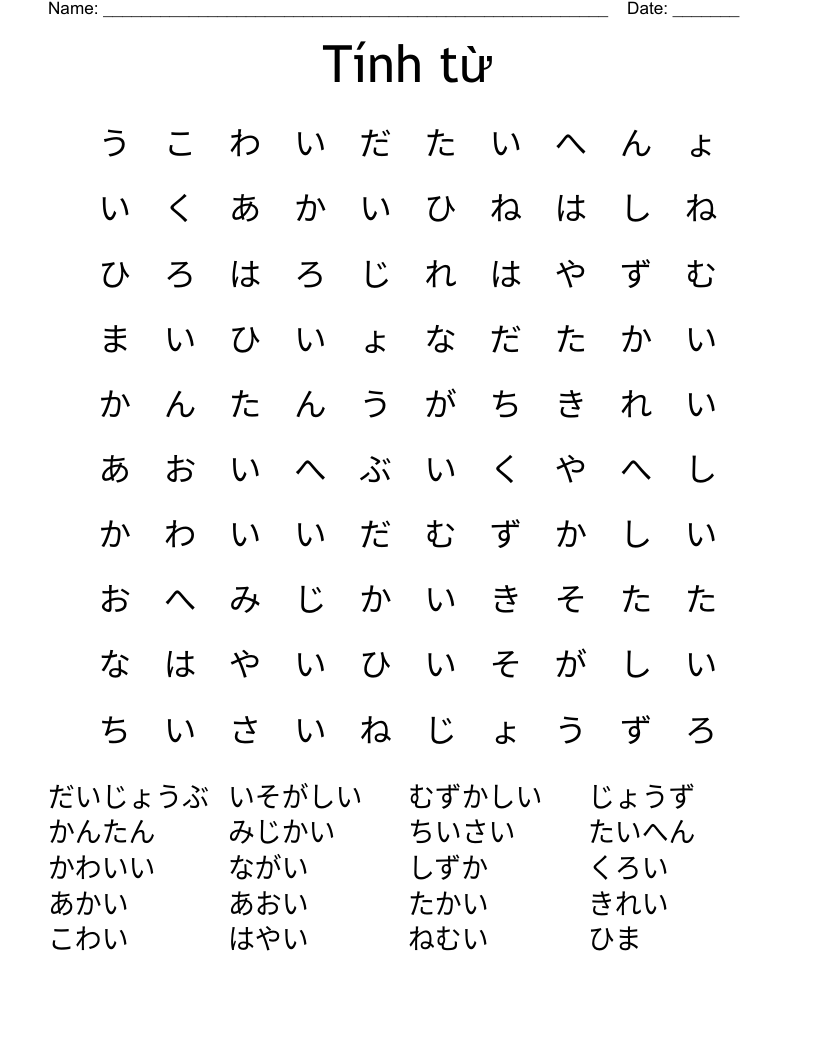 Name: _____________________________________________________ Date: _______
Tính từ
う こ わ い だ た い へ ん ょ
い く あ か い ひ ね は し ね
ひ ろ は ろ じ れ は や ず む
ま い ひ い ょ な だ た か い
か ん た ん う が ち き れ い
あ お い へ ぶ い く や へ し
か わ い い だ む ず か し い
お へ み じ か い き そ た た
な は や い ひ い そ が し い
ち い さ い ね じ ょ う ず ろ
だいじょうぶ いそがしい むずかしい じょうず
かんたん みじかい ちいさい たいへん
かわいい ながい しずか くろい
あかい あおい たかい きれい
こわい はやい ねむい ひま